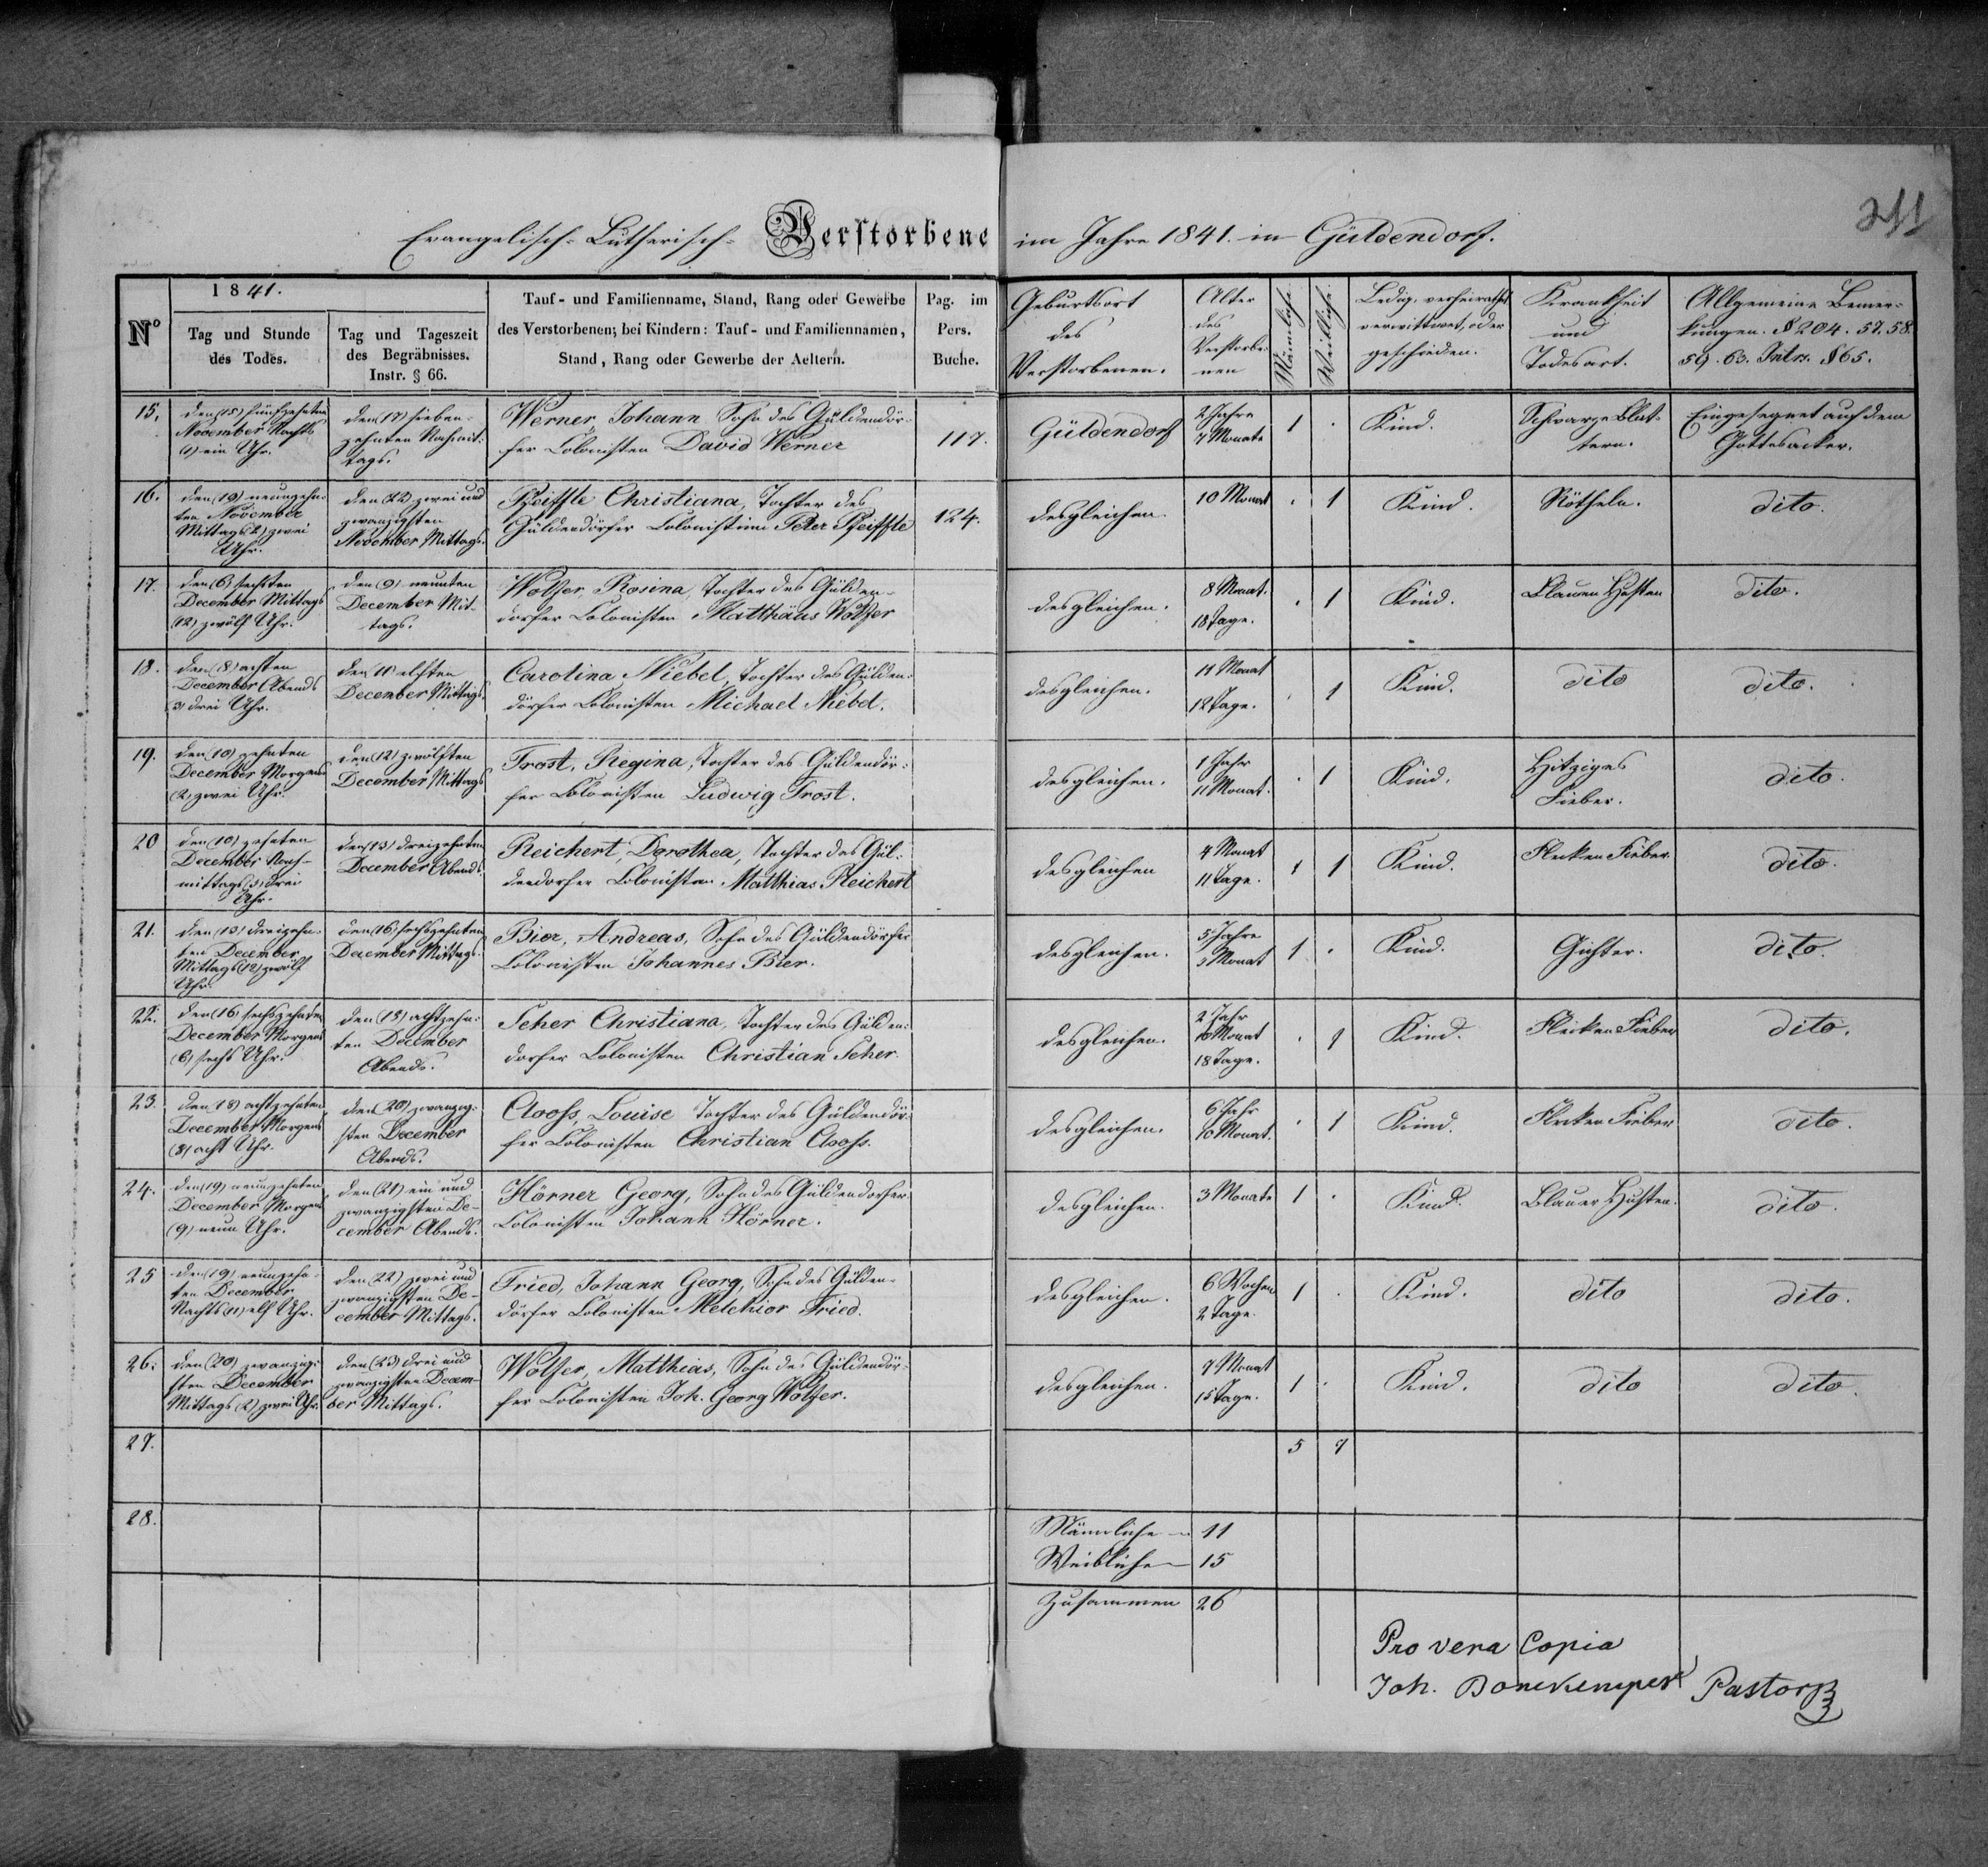 211
Evangelisch-Lutherisch- Verstorbene im Jahre 1841. in Güldendorf.
No
1841.
Tag und Stunde
des Todes.
Tag und Tageszeit
des Begräbnisses.
Instr. § 66.
Tauf- und Familienname, Stand, Rang oder Gewerbe
des Verstorbenen; bei Kindern: Tauf- und Familiennamen,
Stand, Rang oder Gewerbe der Aeltern.
Pag. im
Pers.
Buche.
Geburtsort
des
Verstorbenen.
Alter
des
Verstorbe-
nen
Männliche
Weibliche
Ledig, verheirathet
verwittwet, oder
geschieden.
Krankheit
und
Todesart.
Allgemeine Bemer-
kungen. § 204. 57. 58.
59. 63. Intr. § 65.
15.
den (15) fünfzehnten
November Nachts
(1) ein Uhr.
den (17) sieben-
zehnten Nachmit-
tags.
Werner, Johann Sohn des Güldendör-
fer Colonisten David Werner
117.
Güldendorf
2 Jahre
7 Monate
1 .
Kind.
Schwarze Blat-
tern.
Eingesegnet auf dem
Gottesacker.
16.
den (19) neunzehn-
ten November
Mittags (2) zwei
Uhr.
den (22) zwei und
zwanzigsten
November Mittags.
Pfeiffle Christiana, Tochter des
Güldendörfer Colonisten Peter Pfeiffle
124.
desgleichen.
10 Monat
. 1
Kind.
Rötheln.
dito.
17.
den (6) sechsten
December Mittags
(12) zwölf Uhr.
den (9) neunten
December Mit-
tags.
Wolfer, Rosina, Tochter des Gülden-
dorfer Colonisten Matthäus Wolfer
desgleichen.
8 Monat.
18 Tage.
. 1
Kind.
Blauen Husten
dito.
18.
den (8) achten
December Abends
(3) drei Uhr.
den (11) elften
December Mittags.
Carolina Niebel, Tochter des Gülden-
dörfer Colonisten Michael Niebel.
desgleichen.
11 Monat
12 Tage.
. 1
Kind.
dito
dito.
19.
den (10) zehnten
December Morgens
(2) zwei Uhr.
den (12) zwölften
December Mittags
Trost, Regina, Tochter des Güldendör-
fer Colonisten Ludwig Trost.
desgleichen.
1 Jahr
11 Monat.
. 1
Kind.
Hitziges
Fieber.
dito.
20
den (10) zehnten
December Nach-
mittags (3) drei
Uhr.
den (13) dreizehnten
December Abends.
Reichert, Dorothea, Tochter des Gül-
dendorfer Colonisten Matthias Reichert
desgleichen
4 Monat
11 Tage.
1
Kind.
Flecken Fieber.
dito.
21.
den (13) dreizehn-
ten December
Mittags (12) zwölf
Uhr.
den (16) sechszehnten
December Mittags.
Bier, Andreas, Sohn des Güldendörfer
Colonisten Johannes Bier.
desgleichen.
5 Jahre
3 Monat
1 .
Kind.
Gichter.
dito.
22.
den (16) sechszehnten
December Morgens
(6) sechs Uhr.
den (18) achtzehn-
ten December
Abends.
Seher Christiana, Tochter des Gülden-
dorfer Colonisten Christian Seher.
desgleichen.
2 Jahr
10 Monat
18 Tage.
. 1
Kind.
Flecken Fieber
dito.
23.
den (18) achtzehnten
December Morgens
(8) acht Uhr.
den (20) zwanzig-
sten December
Abends.
Clooss, Louise Tochter des Güldendör-
fer Colonisten Christian Clooss.
desgleichen.
6 Jahr
10 Monat.
. 1
Kind.
Flecken Fieber
dito.
24.
den (19) neunzehnten
December Morgens
(9) neun Uhr.
den (21) ein und
zwanzigsten De-
cember Abends.
Hörner Georg, Sohn des Güldendorfer
Colonisten Johann Hörner.
desgleichen.
3 Monate
1 .
Kind.
Blauer Husten.
dito.
25
den (19) neunzehn-
ten December
Nachts (11) elf Uhr.
den (22) zwei und
zwanzigsten De-
cember Mittags.
Fried, Johann Georg, Sohn des Gülden-
dörfer Colonisten Melchior Fried.
desgleichen.
6 Wochen
2 Tage.
1 .
Kind.
dito
dito.
26.
den (20) zwanzig-
sten December
Mittags (2) zwei Uhr.
den (23) drei und
zwanzigsten Decem-
ber Mittags.
Wolfer, Matthias, Sohn des Güldendör-
fer Colonisten Joh. Georg Wolfer.
desgleichen.
7 Monat
15 Tage.
1 .
Kind.
dito
dito.
27.
5 7
28.
Männliche 11
Weibliche 15
Zusammen 26
Pro vera Copia
Joh. Bonekemper Pastor